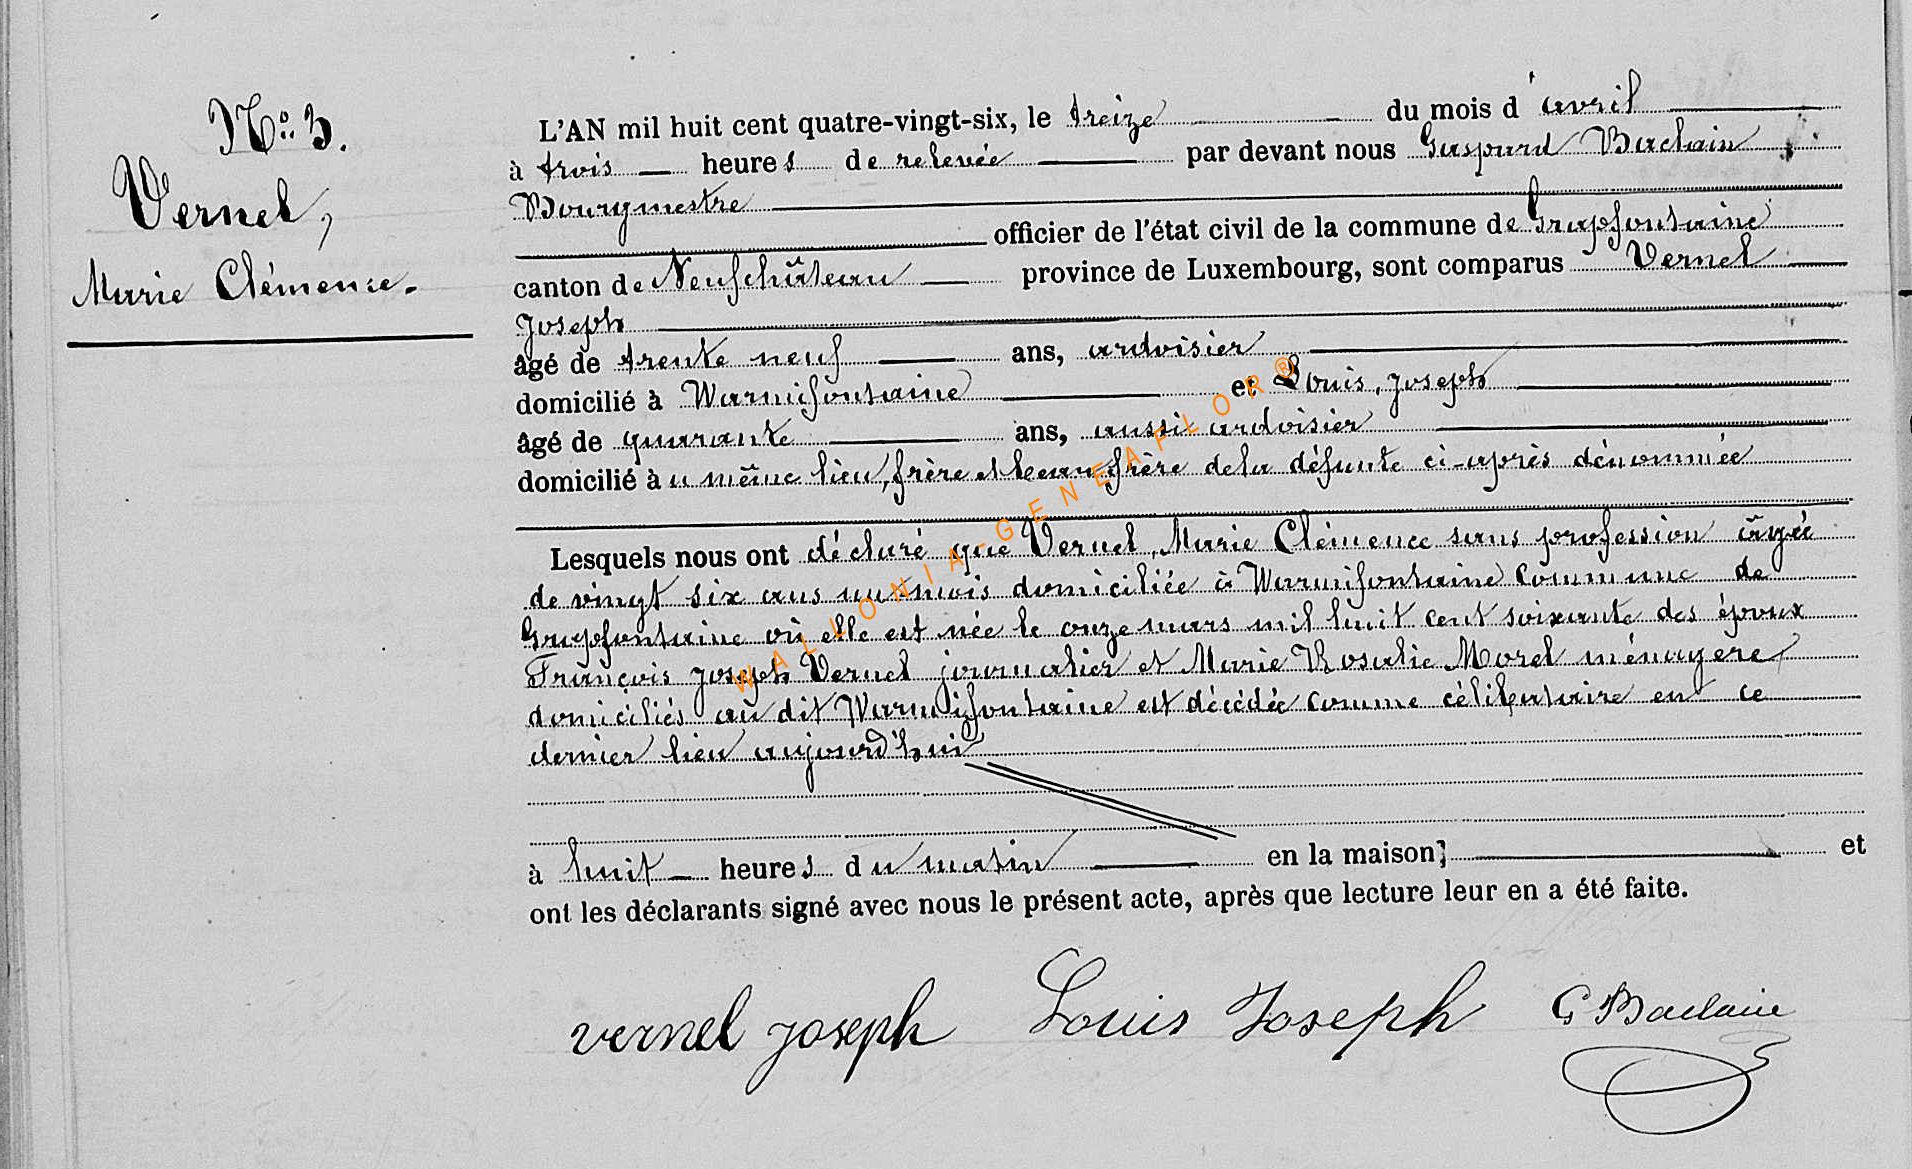 No. 3.
Vernel,
Marie Clémence.
L'AN mil huit cent quatre-vingt-six, le treize du mois d'avril
à trois heures de relevée par devant nous Gaspard Baclain
Bourgmestre
officier de l'état civil de la commune de Grapfontaine
canton de Neufchâteau province de Luxembourg, sont comparus Vernel
Joseph
âgé de trente neuf ans, ardoisier
domicilié à Warmifontaine et Louis, Joseph
âgé de quarante ans, aussi ardoisier
domicilié au même lieu, frère et beau frère de la défunte ci-après dénommée
Lesquels nous ont déclaré que Vernel, Marie Clémence sans profession âgée
de vingt six ans un mois domiciliée à Warmifontaine commune de
Grapfontaine où elle est née le onze mars mil huit cent soixante des époux
François Joseph Vernel journalier et Marie Rosalie Morel ménagère
domiciliés au dit Warmifontaine est décédée comme célibataire en ce
dernier lieu aujourd'hui
à huit heures du matin en la maison; et
ont les déclarants signé avec nous le présent acte, après que lecture leur en a été faite.
vernel joseph Louis Joseph G Baclain
WALLONIA-GENEAFLOR®